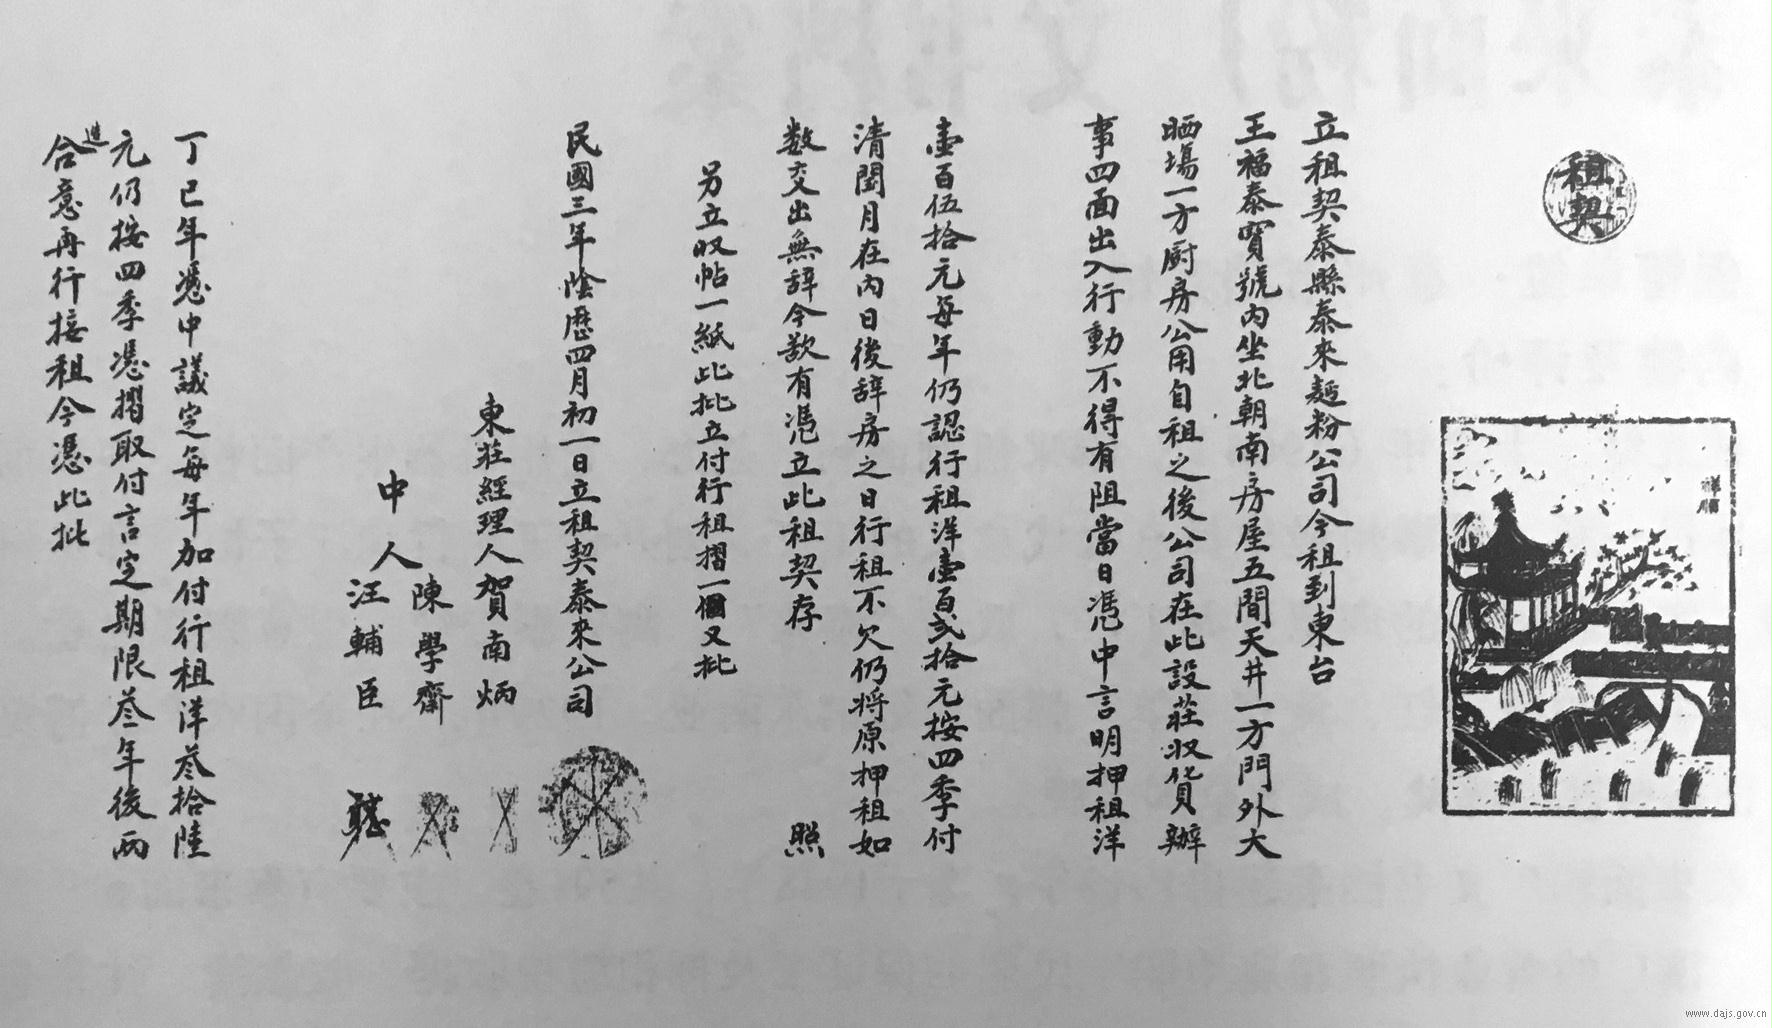 租契
祥順
立租契泰縣泰來麵粉公司今租到東台
王福泰寶號內坐北朝南房屋五間天井一方門外大
晒場一方厨房公用自租之後公司在此設莊収貨辦
事四面出入行動不得有阻當日憑中言明押租洋
壹百伍拾元每年仍認行租洋壹百貳拾元按四季付
清閏月在內日後辞房之日行租不欠仍將原押租如
数交出無辞今欲有憑立此租契存 照
另立収帖一紙此批立付行租摺一個又批
民國三年陰歷四月初一日立租契泰來公司
東莊經理人賀南炳
中人 陳學齋
汪輔臣
丁巳年憑中議定每年加付行租洋叁拾陸
元仍按四季憑摺取付言定期限叁年後兩
進
合意再行接租今憑此批
www.dajs.gov.cn